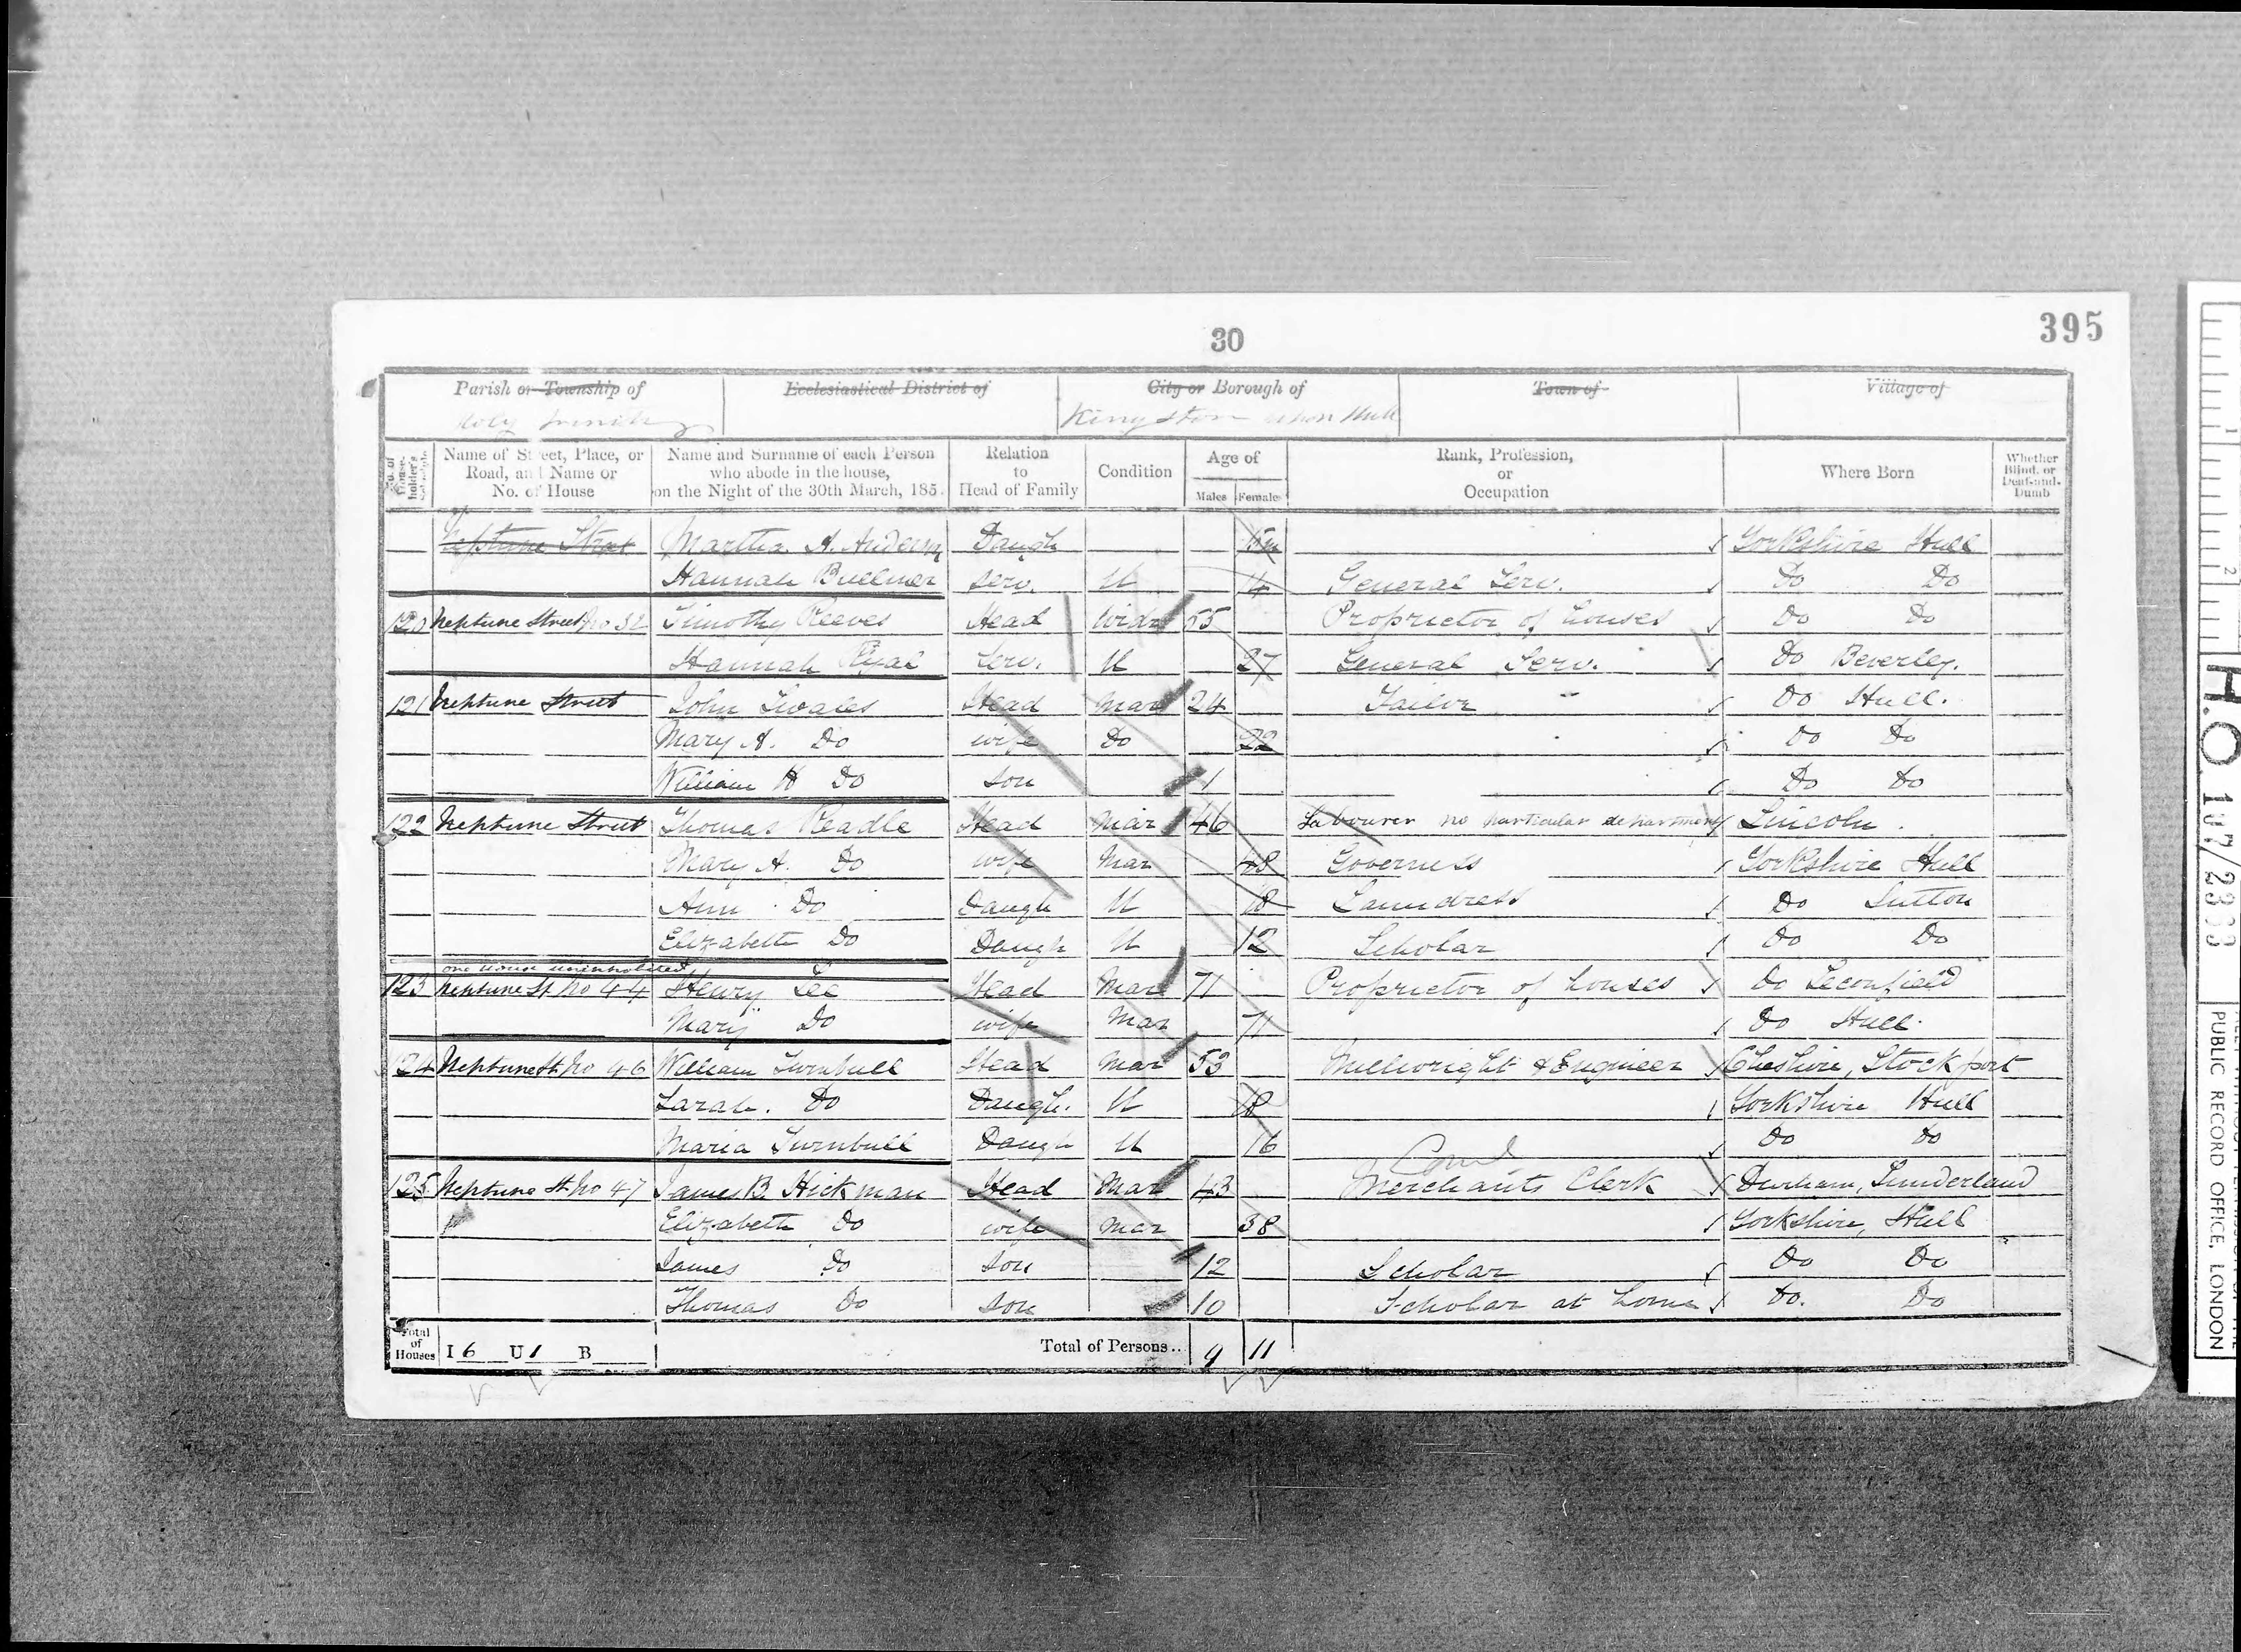 30
395
Parish or Township of Ecclesiastical District of City or Borough of Town of Village of
Holy Trinity Kingston upon Hull
No. of House-holder's Schedule Name of Street, Place, or Road, and Name or No. of House Name and Surname of each Person who abode in the house, on the Night of the 30th March, 185 Relation to Head of Family Condition Age of Males Females Rank, Profession, or Occupation Where Born Whether Blind, or Deaf-and-Dumb
Neptune Street Martha A. Anderson Daugh Yorkshire Hull
Hannah Bullmer Serv. U 14 General Serv. Do Do
120 Neptune Street No 32 Timothy Reeves Head Widr 55 Proprietor of houses Do Do
Hannah Ryal Serv. U 27 General Serv. Do Beverley.
121 Neptune Street John Twales Head Mar 24 Tailor Do Hull.
Mary A. Do wife Do 22 Do Do
William H Do son 1 Do Do
122 Neptune Street Thomas Readle Head Mar 46 Labourer no particular department Lincoln.
Mary A. Do wife Mar 48 Governess Yorkshire Hull
Ann Do Daugh U 18 Laundress Do Sutton
Elizabeth Do Daugh U 12 Scholar Do Do
one house uninhabited
123 Neptune St No 44 Henry Lee Head Mar 71 Proprietor of houses Do Leconfield
Mary Do wife Mar 71 Do Hull.
124 Neptune St. No 46 William Turnbull Head Mar 53 Millwright & Engineer Cheshire, Stockport
Sarah. Do Daugh. U 18 Yorkshire Hull
Maria Turnbull Daugh U 16 Do Do
125 Neptune St No 47 James B. Hickman Head Mar 43 Merchants Clerk Durham, Sunderland
Elizabeth Do wife Mar 38 Yorkshire, Hull
James Do son 12 Scholar Do Do
Thomas Do son 10 Scholar at home Do. Do
Total of Houses I 6 U 1 B Total of Persons.. 9 11
H.O. 107/2363
PUBLIC RECORD OFFICE, LONDON
1
2